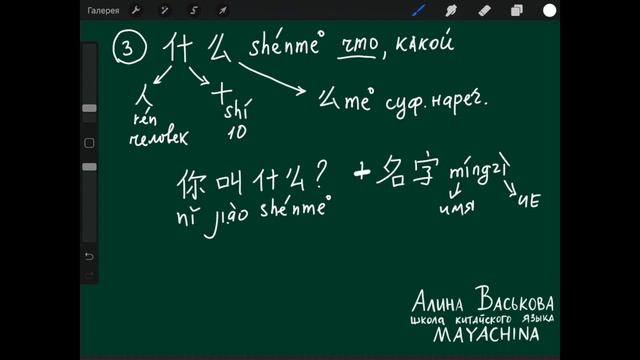 Галерея
③ 什么 shénme° что, какой
人 十 么 me° суф. нареч.
rén shí
человек 10
你叫什么? + 名字 míngzì
nǐ jiào shénme° имя ИЕ
Алина Васькова
школа китайского языка
MAYACHINA